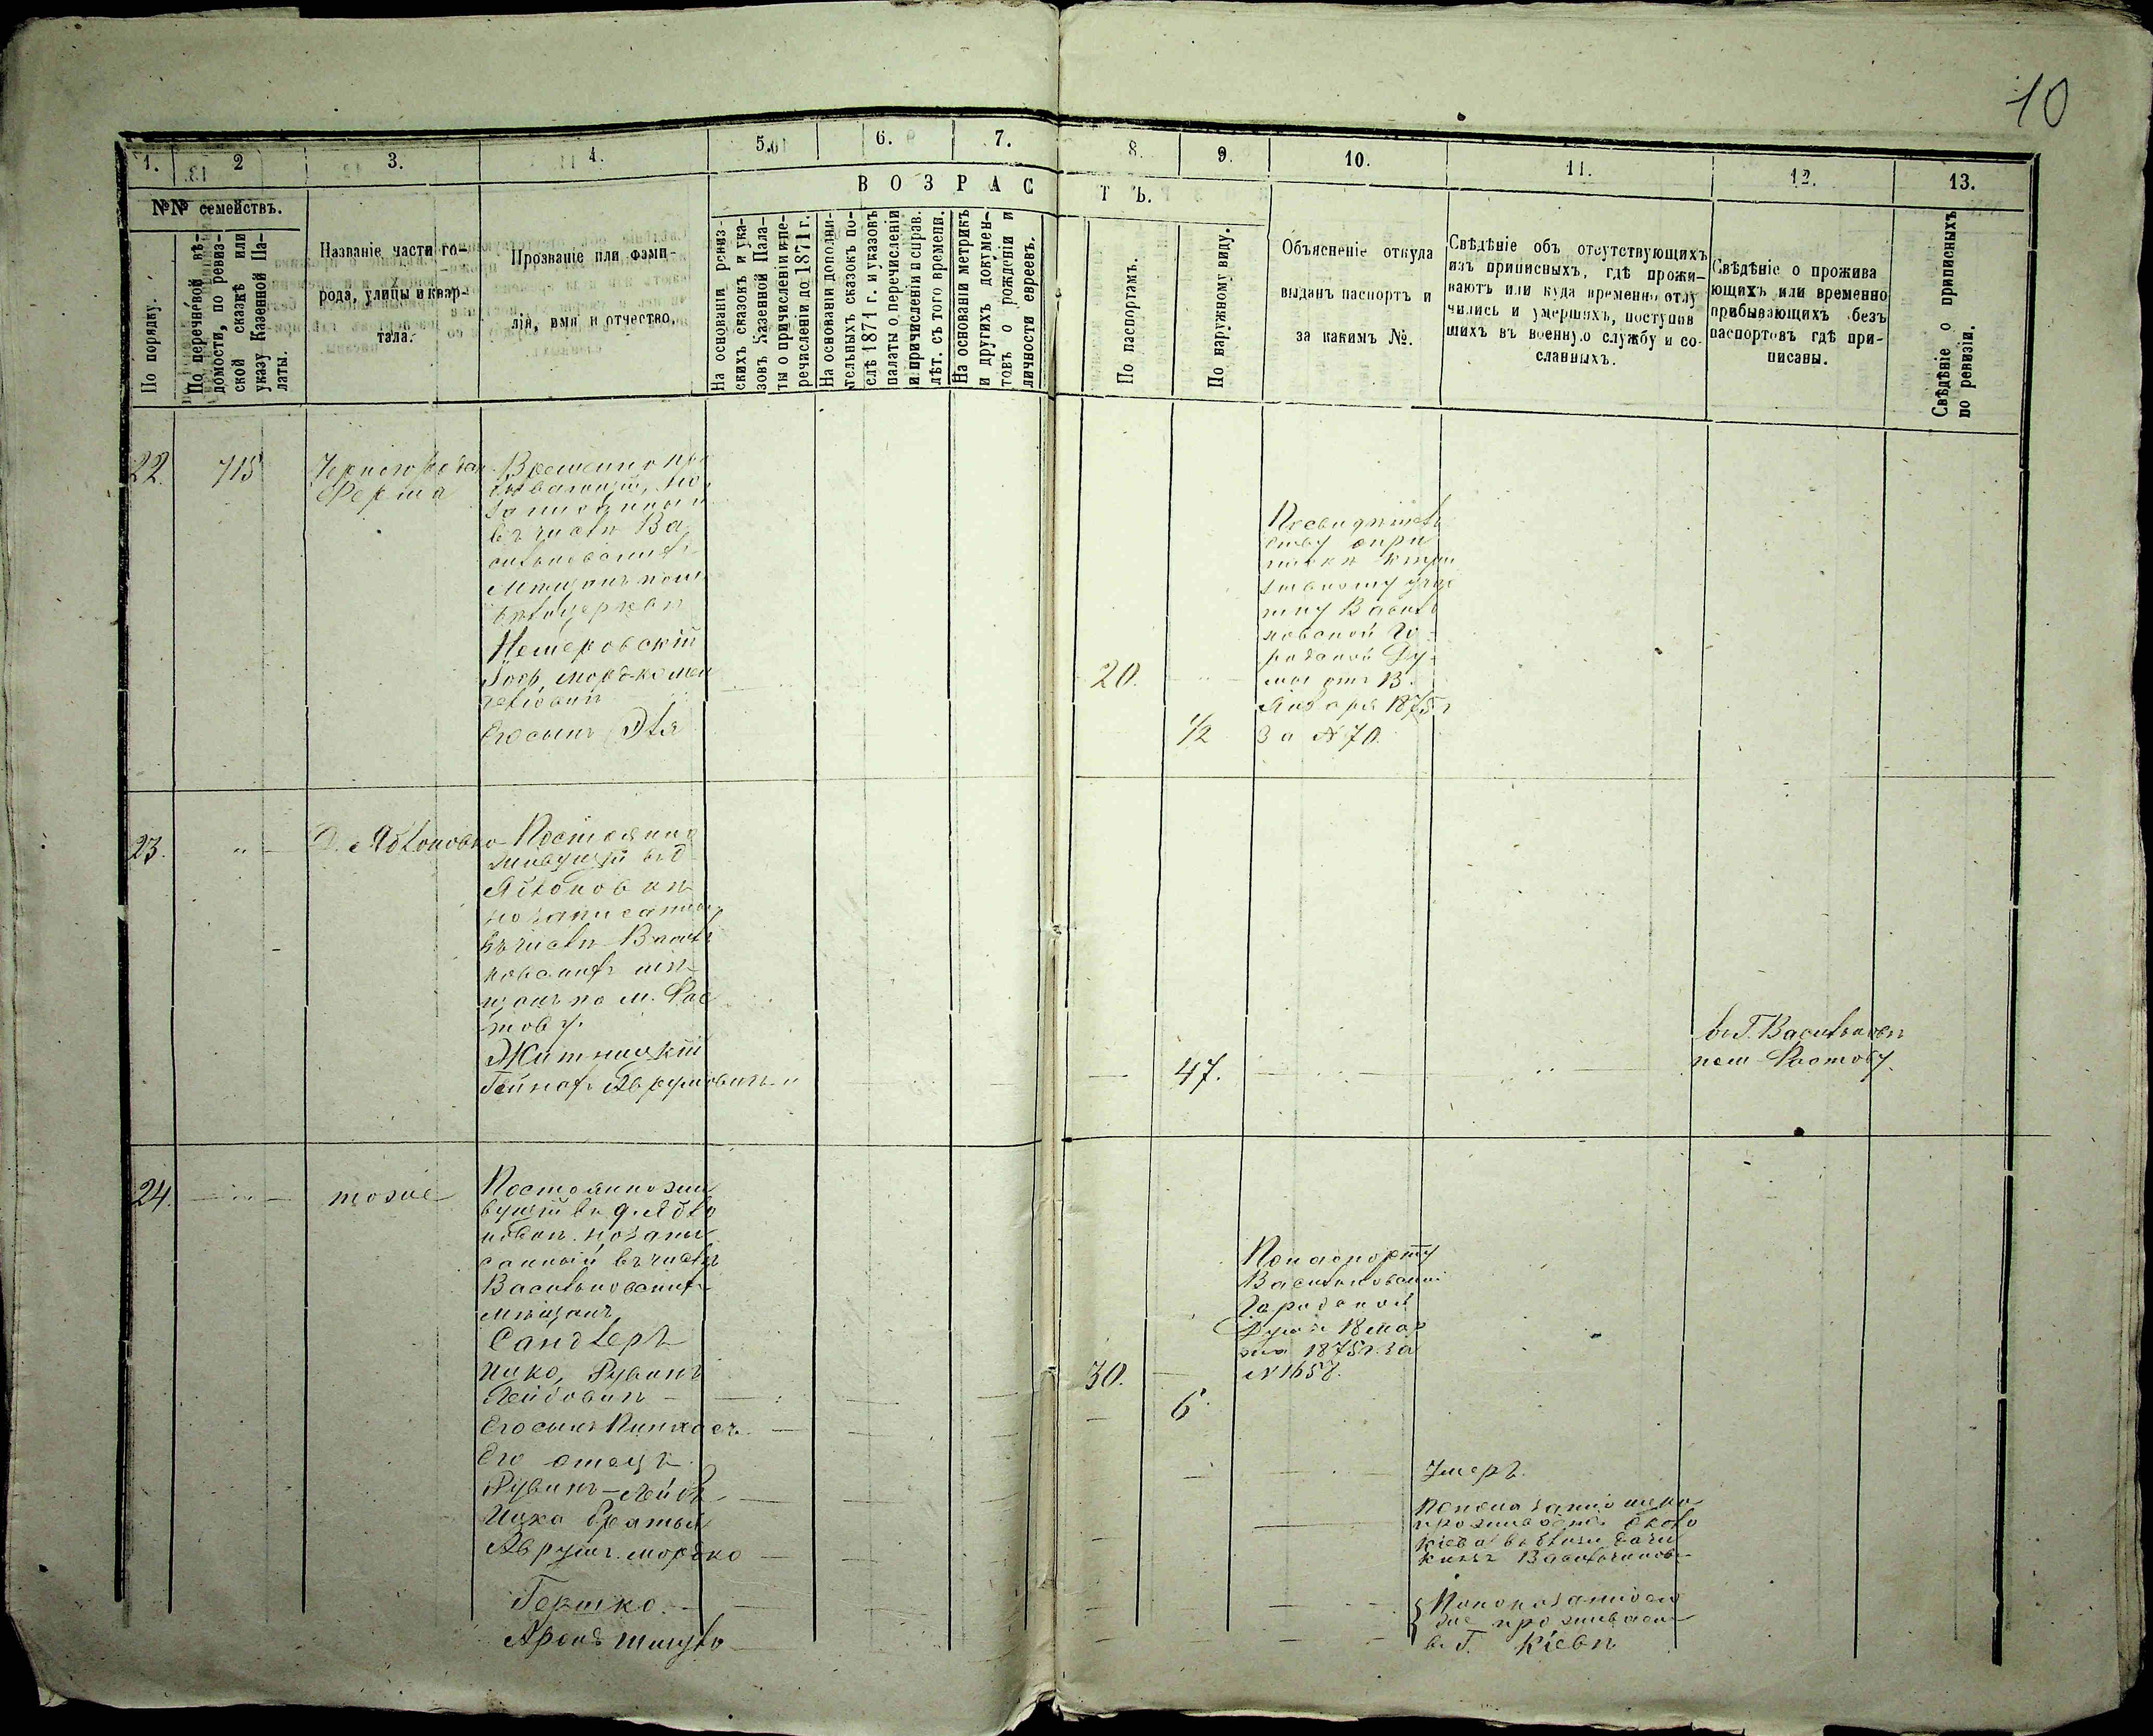 10
1. 2 3. 4. 5. 6. 7. 8. 9. 10. 11. 12. 13.
В О З Р А С Т Ъ.
№№ семействъ.
По порядку.
По перечневой вѣ-
домости, по ревиз-
ской сказкѣ или
указу Казенной Па-
латы.
Названіе части го-
рода, улицы и квар-
тала.
Прозваніе или фами-
лія, имя и отчество.
На основаніи ревиз-
скихъ сказокъ и ука-
зовъ Казенной Пала-
ты о причисленіи и пе-
речисленіи до 1871 г.
На основаніи дополни-
тельныхъ сказокъ по-
слѣ 1871 г. и указовъ
палаты о перечисленіи
и причисленіи и справ.
лѣт. съ того времени.
На основаніи метрикъ
и другихъ докумен-
товъ о рожденіи и
личности евреевъ.
По паспортамъ.
По наружному виду.
Объясненіе откуда
выданъ паспортъ и
за какимъ №.
Свѣдѣніе объ отсутствующихъ
изъ приписныхъ, гдѣ прожи-
ваютъ или куда временно отлу
чились и умершихъ, поступив
шихъ въ военную службу и со-
сланныхъ.
Свѣдѣніе о прожива
ющихъ или временно
прибывающихъ безъ
паспортовъ гдѣ при-
писаны.
Свѣдѣніе о приписныхъ
по ревизіи.
22. 715
Ферма
Временно про
живающій, но
записанный
въ числѣ Ва
сильковскихъ
мѣщанъ пом.
Бѣлоцеркви
Немеровскій
Іось Мордко Мен
делiовичъ
Его сынъ Эля
20.
1/2
Посвидѣтель
ству о при
пискѣ к при
зывному учас
тку Василь
ковской Го-
родской Ду-
мы отъ 13.
Января 1875 г
За № 70.
23. " Д. Яблоновка
Постоянно
живущій въ д
Яблоновкѣ
но записанный
въ числѣ Василь
ковскихъ мѣ
щанъ по м. Фас
тову.
Житницкій
Гейнохъ Аврумовичъ
47.
въ Г. Васильковѣ
по м Фастову.
24. " тоже
Постоянно жи
вущій въ д. Ябло
новкѣ но запи
санный въ числѣ
Васильковскихъ
мѣщанъ
Сандлеръ
Ицко, Рувинъ
Лейбовичъ
30.
Попаспорту
Васильковской
Городской
Думы 18 мар
та 1875 г. за
№ 1658.
Его сынъ Пинхасъ
6.
Его отецъ
Рувинъ-Лейбъ
Умеръ.
Ицка братья
Аврумъ Мордко
Попоказанію
проживаетъ около
Кіева вблизи дачи
Князя Васильчикова
Гершко.
Аронъ Шмуль
Попоказанію его
же проживаютъ
въ Г. Кіевѣ